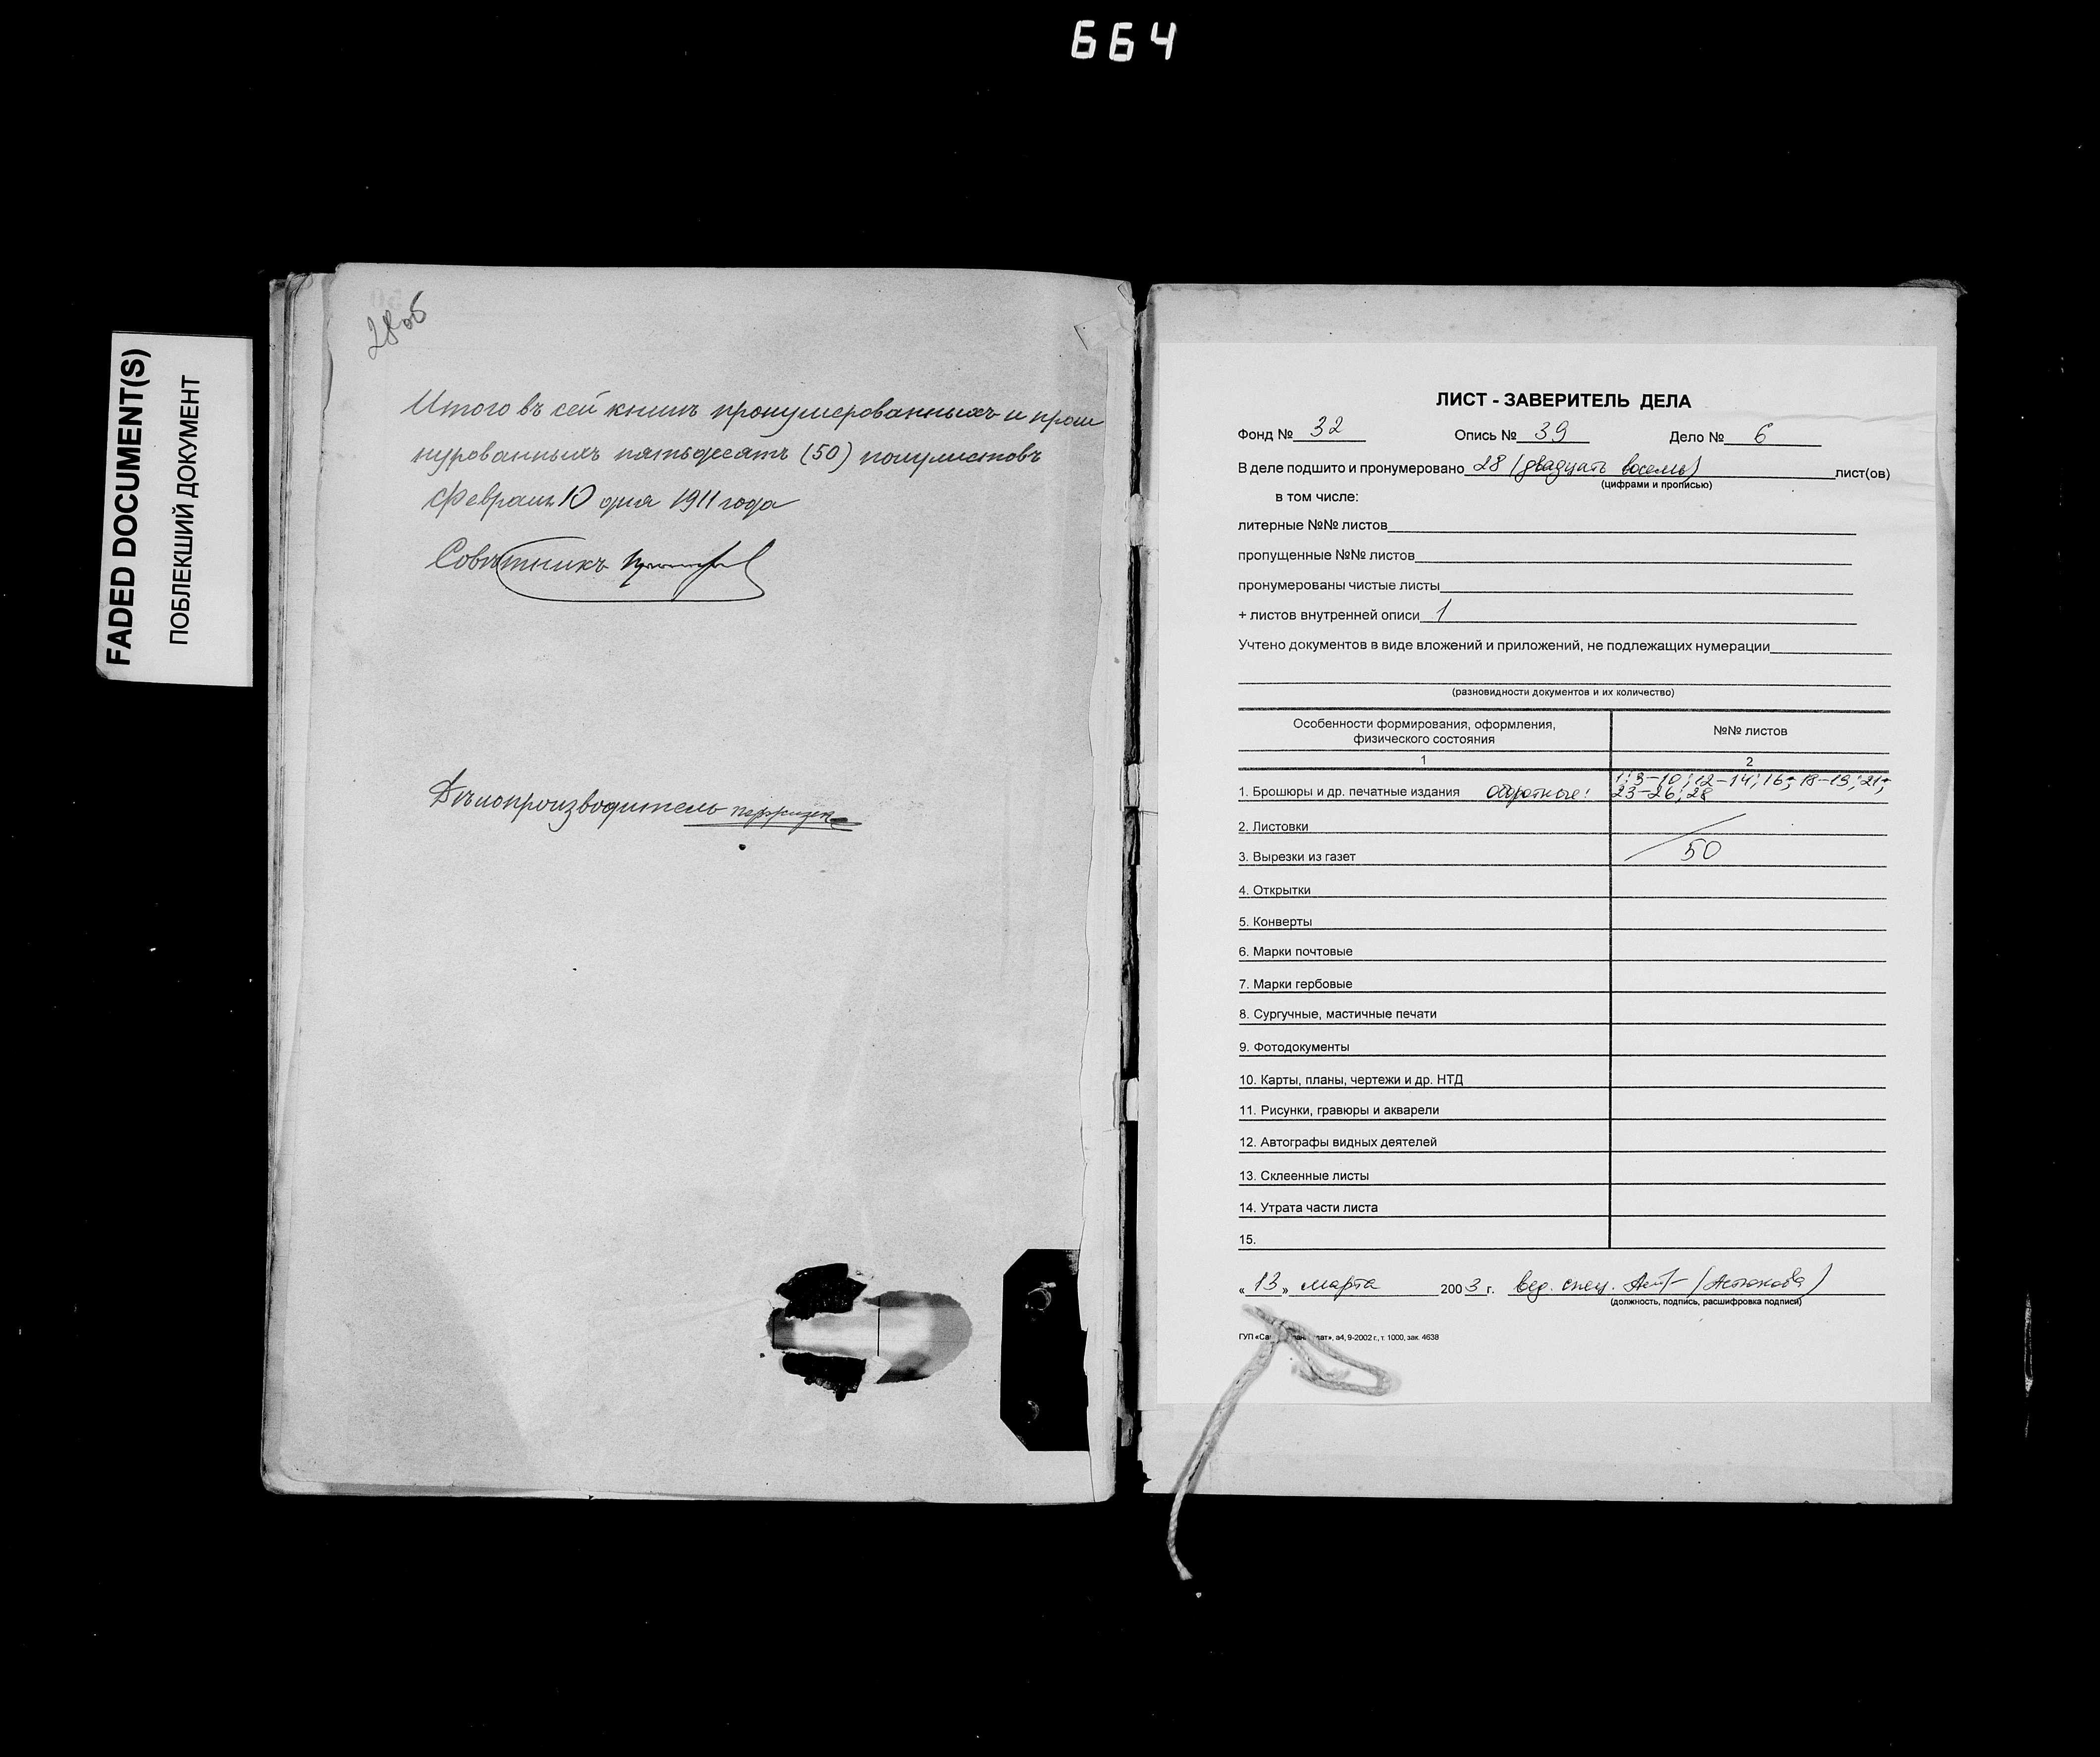 664
FADED DOCUMENT(S)
ПОБЛЕКШИЙ ДОКУМЕНТ
28об
Итого въ сей книгѣ пронумерованныхъ и прош
нурованныхъ пятьдесятъ (50) полулистовъ
Февраля 10 дня 1911 года
Совѣтникъ
Дѣлопроизводитель
ЛИСТ - ЗАВЕРИТЕЛЬ ДЕЛА
Фонд № 32 Опись № 39 Дело № 6
В деле подшито и пронумеровано 28 (двадцать восемь) лист(ов)
(цифрами и прописью)
в том числе:
литерные №№ листов
пропущенные №№ листов
пронумерованы чистые листы
+ листов внутренней описи 1
Учтено документов в виде вложений и приложений, не подлежащих нумерации
(разновидности документов и их количество)
Особенности формирования, оформления,
физического состояния
№№ листов
1 2
1. Брошюры и др. печатные издания оборотные: 1; 3-10; 12-14; 16; 18-19; 21;
23-26; 28
2. Листовки
3. Вырезки из газет 50
4. Открытки
5. Конверты
6. Марки почтовые
7. Марки гербовые
8. Сургучные, мастичные печати
9. Фотодокументы
10. Карты, планы, чертежи и др. НТД
11. Рисунки, гравюры и акварели
12. Автографы видных деятелей
13. Склеенные листы
14. Утрата части листа
15.
« 13 » марта 2003 г. вед. спец.
(должность, подпись, расшифровка подписи)
ГУП а4, 9-2002 г., т. 1000, зак. 4638